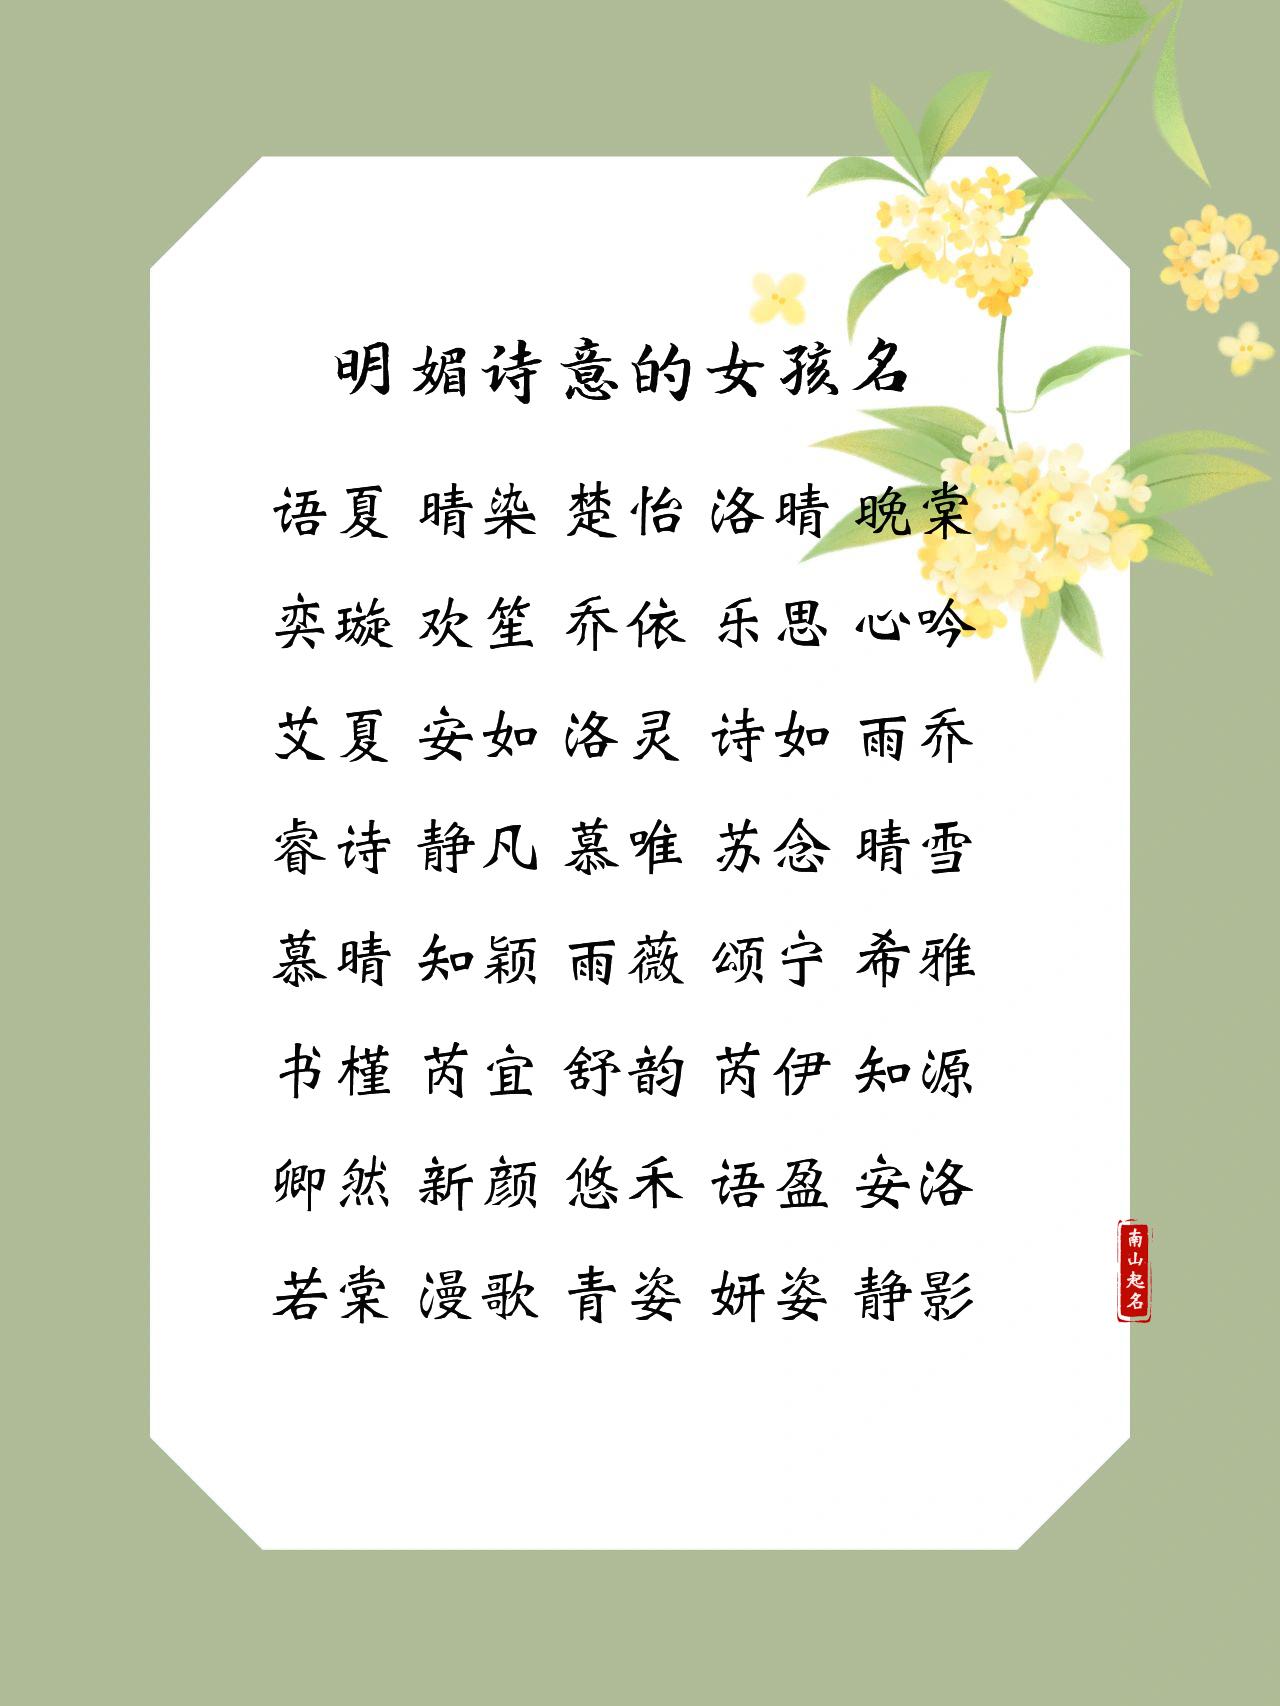 明媚诗意的女孩名
语夏 晴染 楚怡 洛晴 晚棠
奕璇 欢笙 乔依 乐思 心吟
艾夏 安如 洛灵 诗如 雨乔
睿诗 静凡 慕唯 苏念 晴雪
慕晴 知颖 雨薇 颂宁 希雅
书槿 芮宜 舒韵 芮伊 知源
卿然 新颜 悠禾 语盈 安洛
若棠 漫歌 青姿 妍姿 静影
南山起名